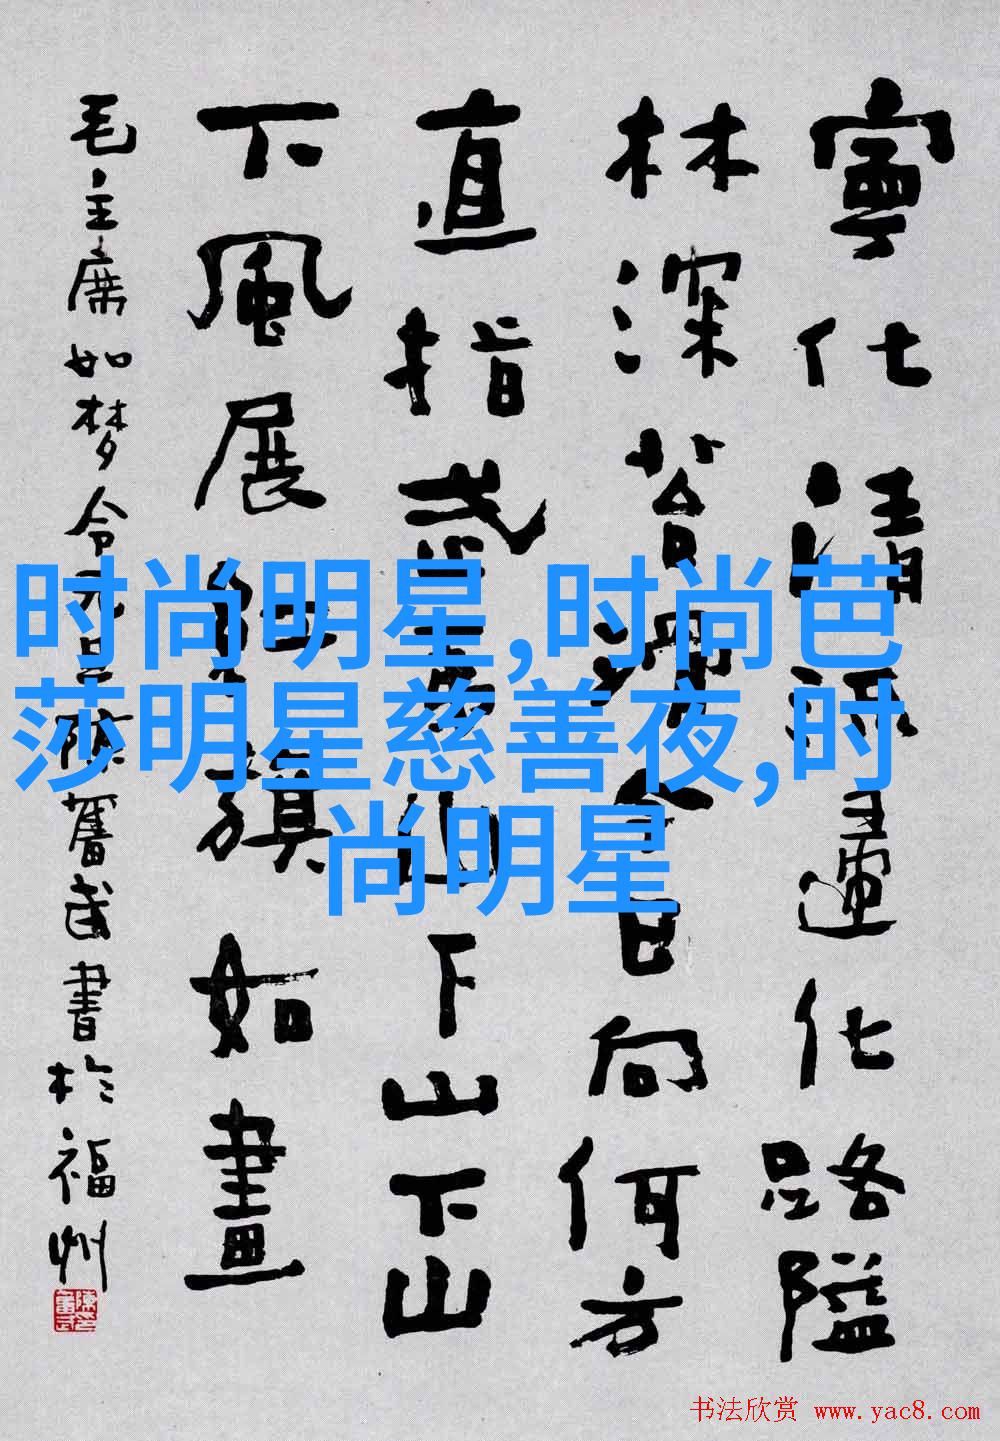 寧化清流化路隘
林深苔滑今日向何方
直指武夷山下山下山
下風展紅旗如畫
毛主席如梦令元旦陳奮武書於福州
时尚明星,时尚芭
莎明星慈善夜,时
尚明星
书法欣赏 www.yac8.com